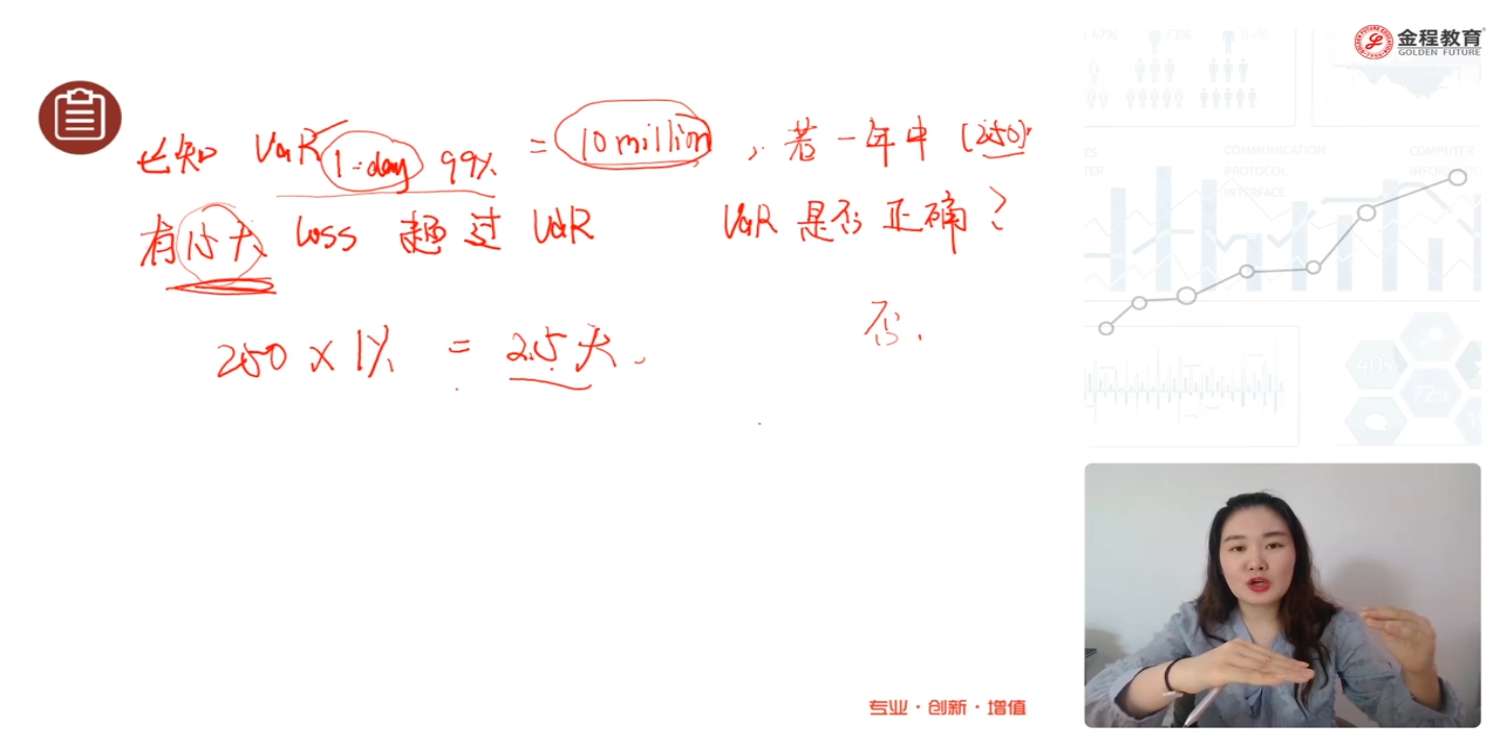 已知 VaR 1-day 99% = 10 million, 若一年中 (250)
有15天 loss 超过 VaR VaR 是否正确?
250 × 1% = 2.5天.
否.
金程教育
GOLDEN FUTURE
COMMUNICATION
PROTOCOL
INTERFACE
COMPUTER
专业·创新·增值